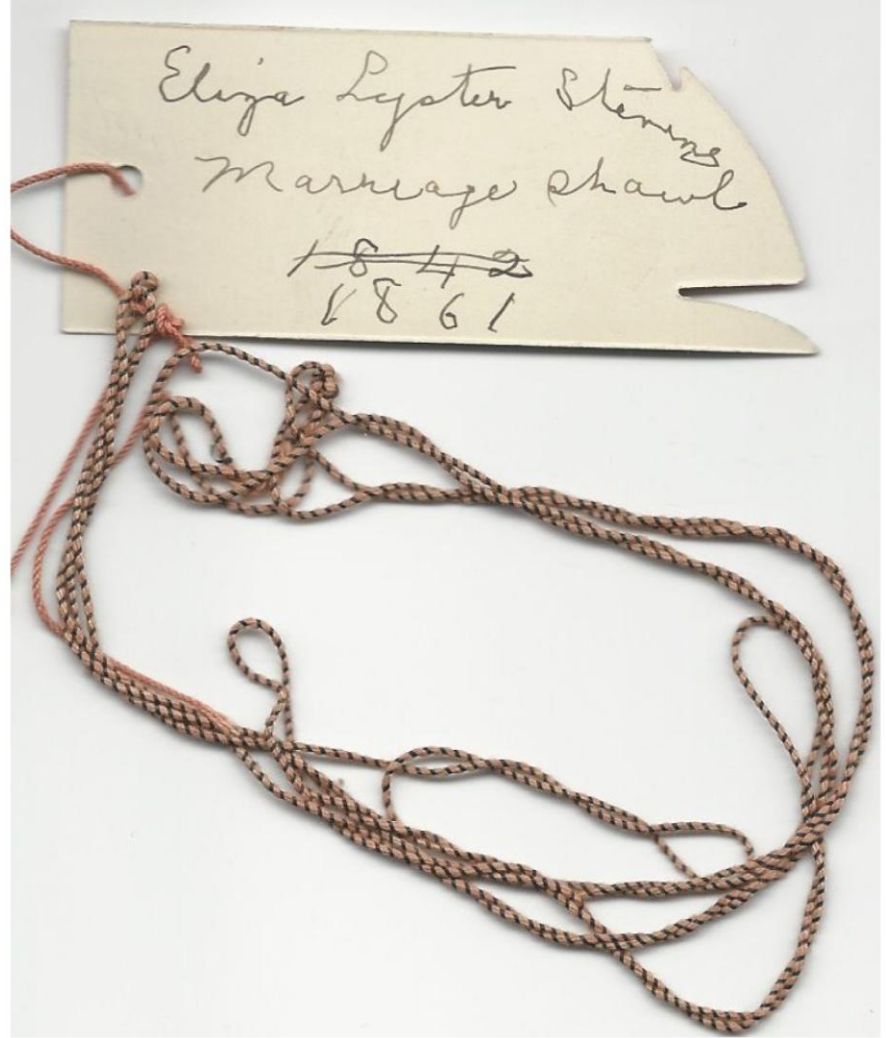 Eliza Lyster Stevens
Marriage shawl
1842
1861